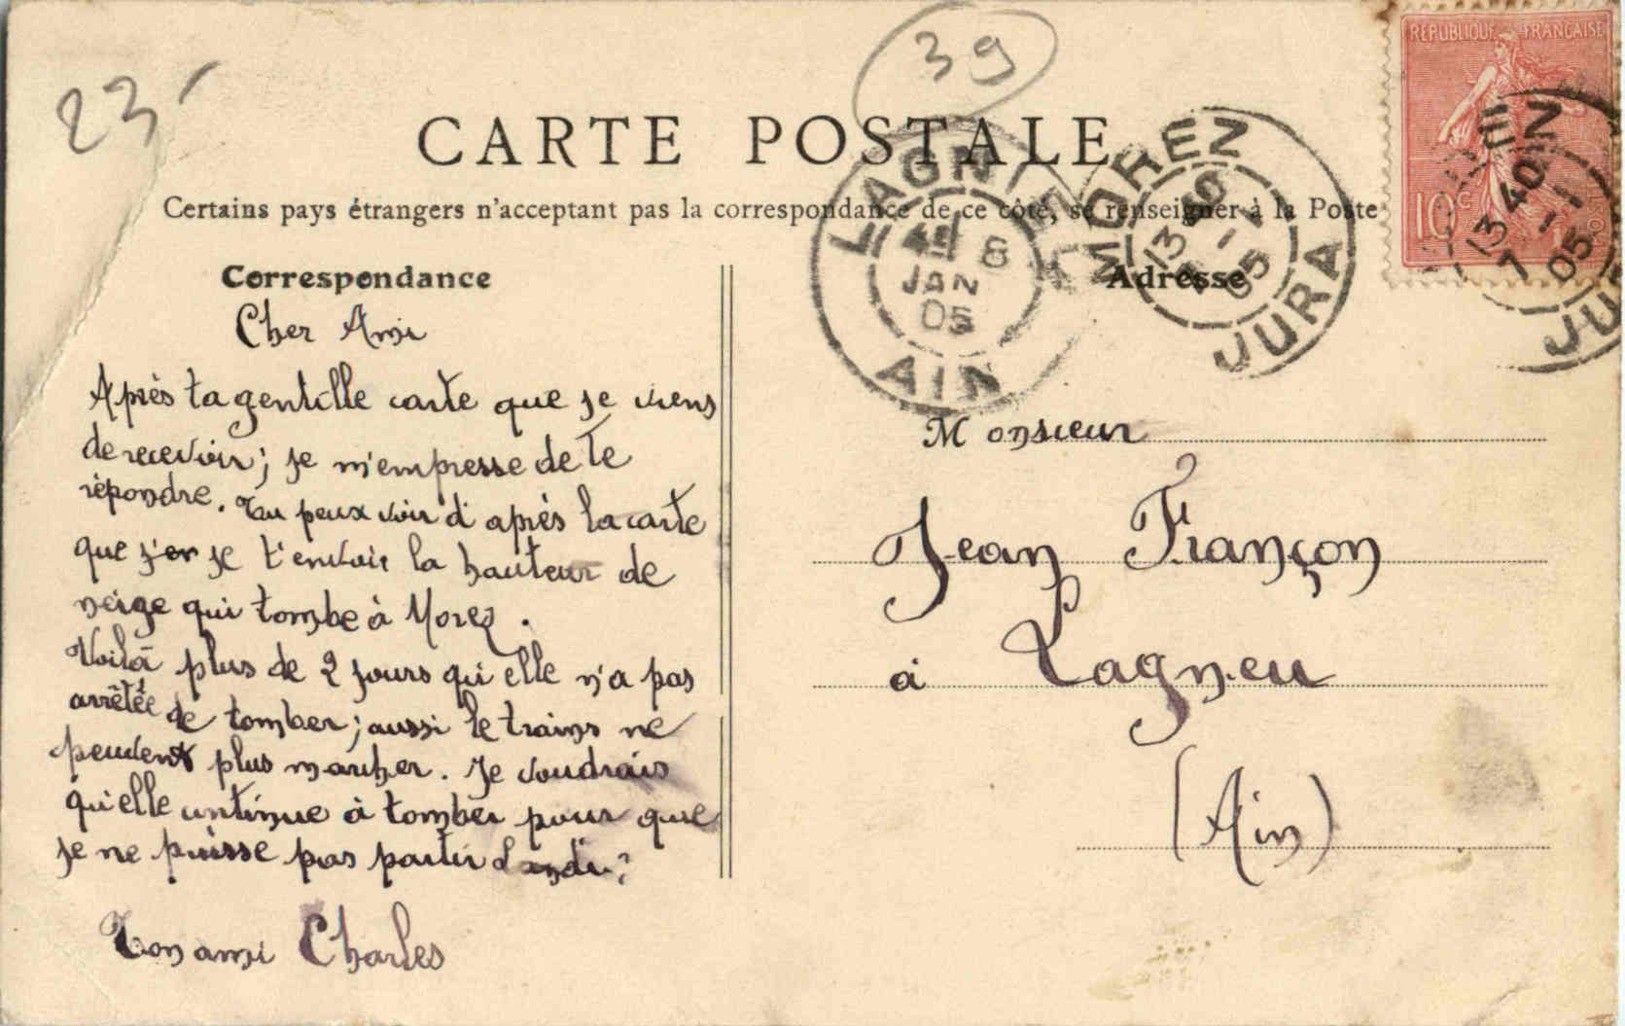 23-
39
CARTE POSTALE
Certains pays étrangers n'acceptant pas la correspondance de ce côté, se renseigner à la Poste
RÉPUBLIQUE FRANÇAISE
10c
LAGNIEU
8
JAN
05
AIN
MOREZ
13 40
7 -1
05
JURA
13 40
7 -1
05
Correspondance
Cher Ami
Après ta gentille carte que je viens
de recevoir; je m'empresse de te
répondre. Tu peux voir d'après la carte
que j'en je t'envoie la hauteur de
neige qui tombe à Morez.
Voilà plus de 2 jours qu'elle n'a pas
arrêtée de tomber; aussi le trains ne
peuvent plus marcher. Je voudrais
qu'elle continue à tomber pour que
je ne puisse pas partir Lundi?
Ton ami Charles
Adresse
Monsieur
Jean Françon
à Lagneu
(Ain)